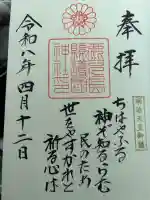 奉拝
明治天皇御製
ちはやふる
神ぞ知るらむ
民のため
世をやすかれと
祈る心は
令和八年四月十二日